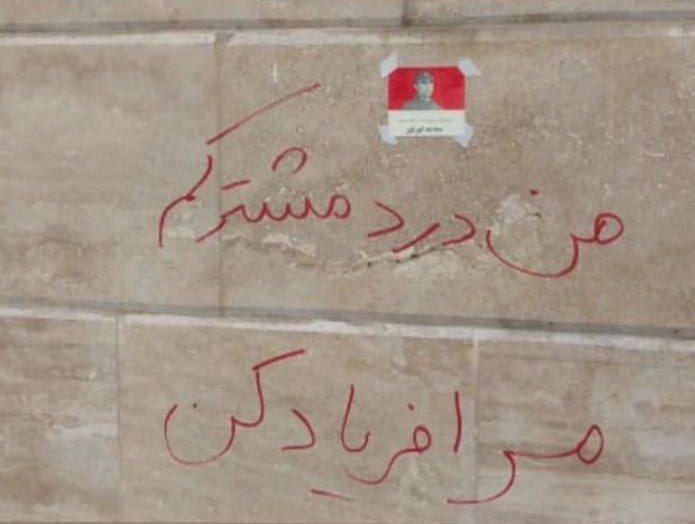 من درد مشترکم
مرا فریاد کن